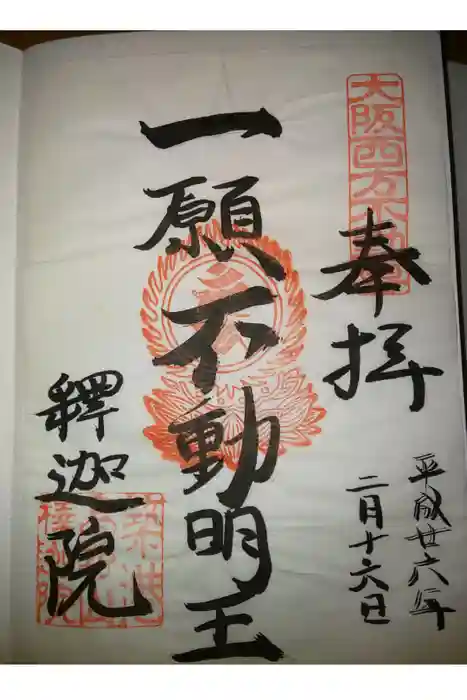 大阪西方不動尊
奉拝
平成廿六年
二月十六日
一願不動明王
釋迦院